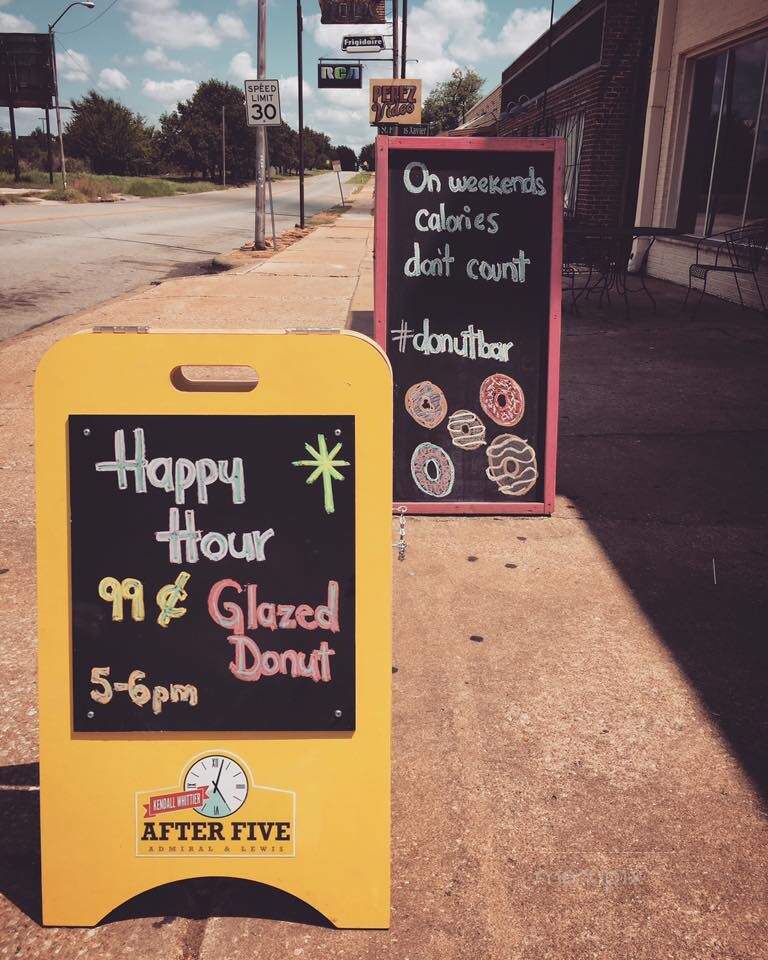 Frigidaire
RCA
SPEED
LIMIT
30
PEREZ
Video
On weekends
calories
don't count
#donutbar
Happy
Hour
99¢ Glazed
Donut
5-6pm
XII
VI
KENDALL WHITTIER
AFTER FIVE
ADMIRAL & LEWIS